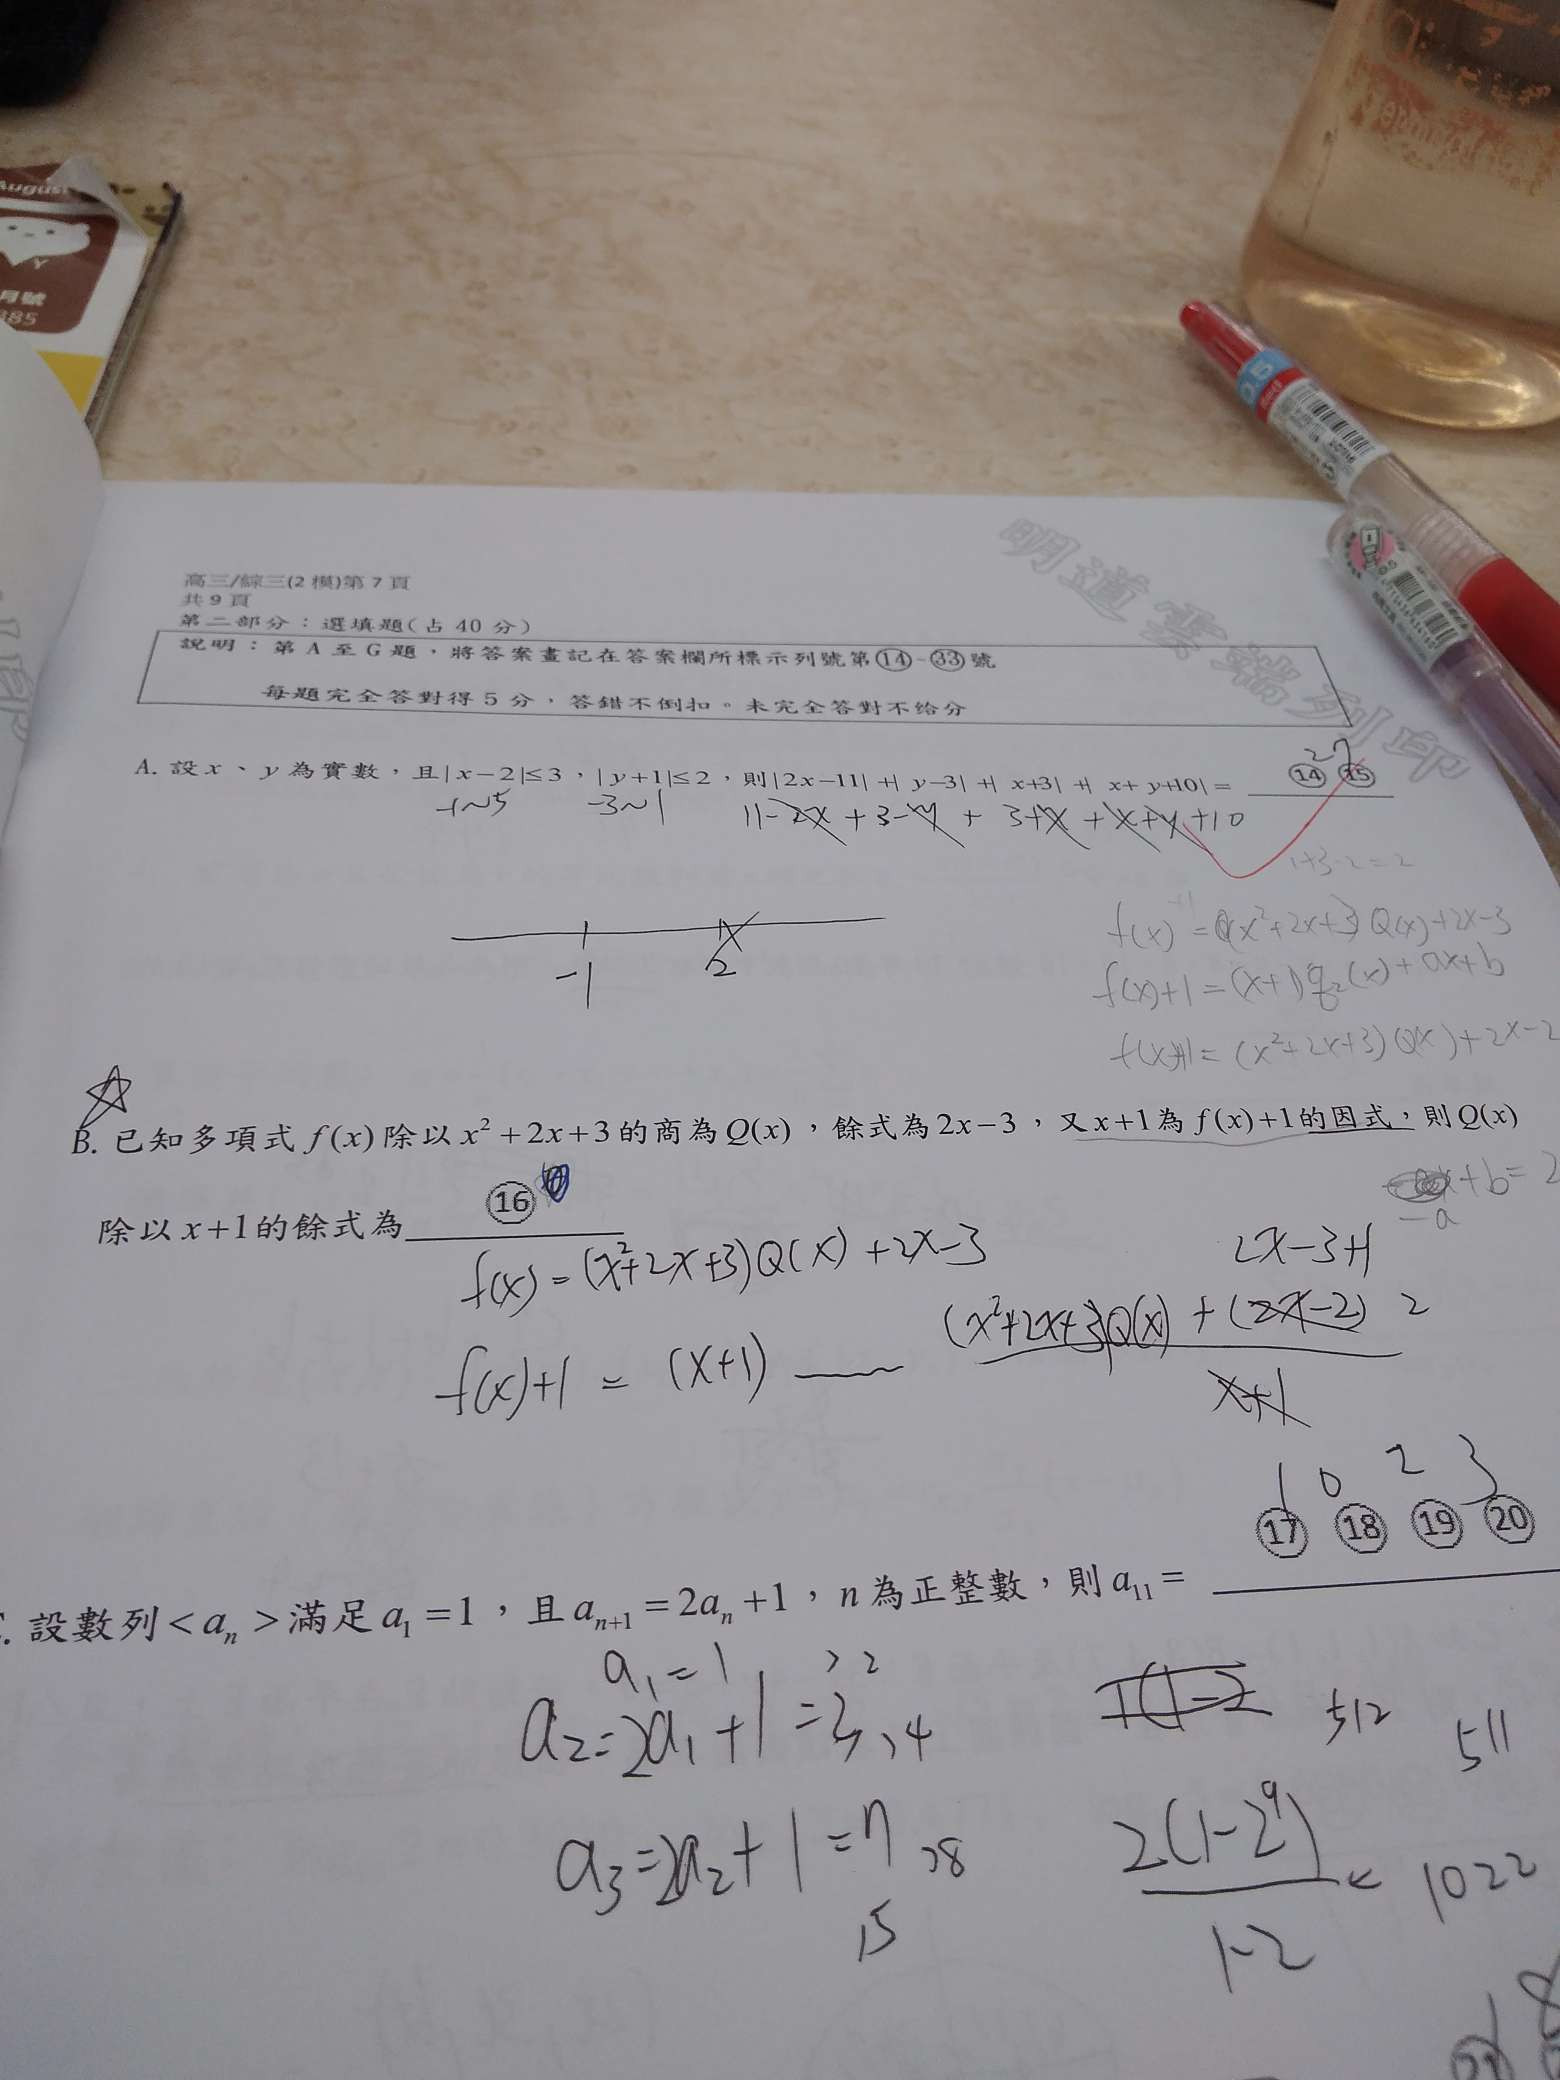 August
月號
385
0.5
明道雲端列印
高三/綜三(2 模)第 7 頁
共 9 頁
第二部分：選填題(占 40 分)
說明：第 A 至 G 題，將答案畫記在答案欄所標示列號第⑭-㉝號
每題完全答對得 5 分，答錯不倒扣。未完全答對不給分
27
A. 設 x、y 為實數，且|x−2|≤3，|y+1|≤2，則|2x−11|+|y−3|+|x+3|+|x+y+10|= ⑭ ⑮
-1~5 -3~1 11-2x+3-y+3+x+x+y+10
1+3-2=2
-1 2
f(x)+1=(x²+2x+3)Q(x)+2x-3
f(x)+1=(x+1)q₂(x)+ax+b
f(x)+1=(x²+2x+3)Q(x)+2x-2
B. 已知多項式 f(x) 除以 x²+2x+3 的商為 Q(x)，餘式為 2x−3，又 x+1 為 f(x)+1 的因式，則 Q(x)
除以 x+1 的餘式為 ⑯
+b=2
-a
f(x)=(x²+2x+3)Q(x)+2x-3
2x-3+1
f(x)+1=(x+1)
(x²+2x+3)Q(x)+(2x-2) 2
x+1
1 0 2 3
. 設數列<aₙ>滿足 a₁=1，且 aₙ₊₁=2aₙ+1，n 為正整數，則 a₁₁= ⑰ ⑱ ⑲ ⑳
a₁=1 >2
a₂=2a₁+1=3 >4
512 511
a₃=2a₂+1=7 >8
15
2(1-2⁹)
1-2
1022